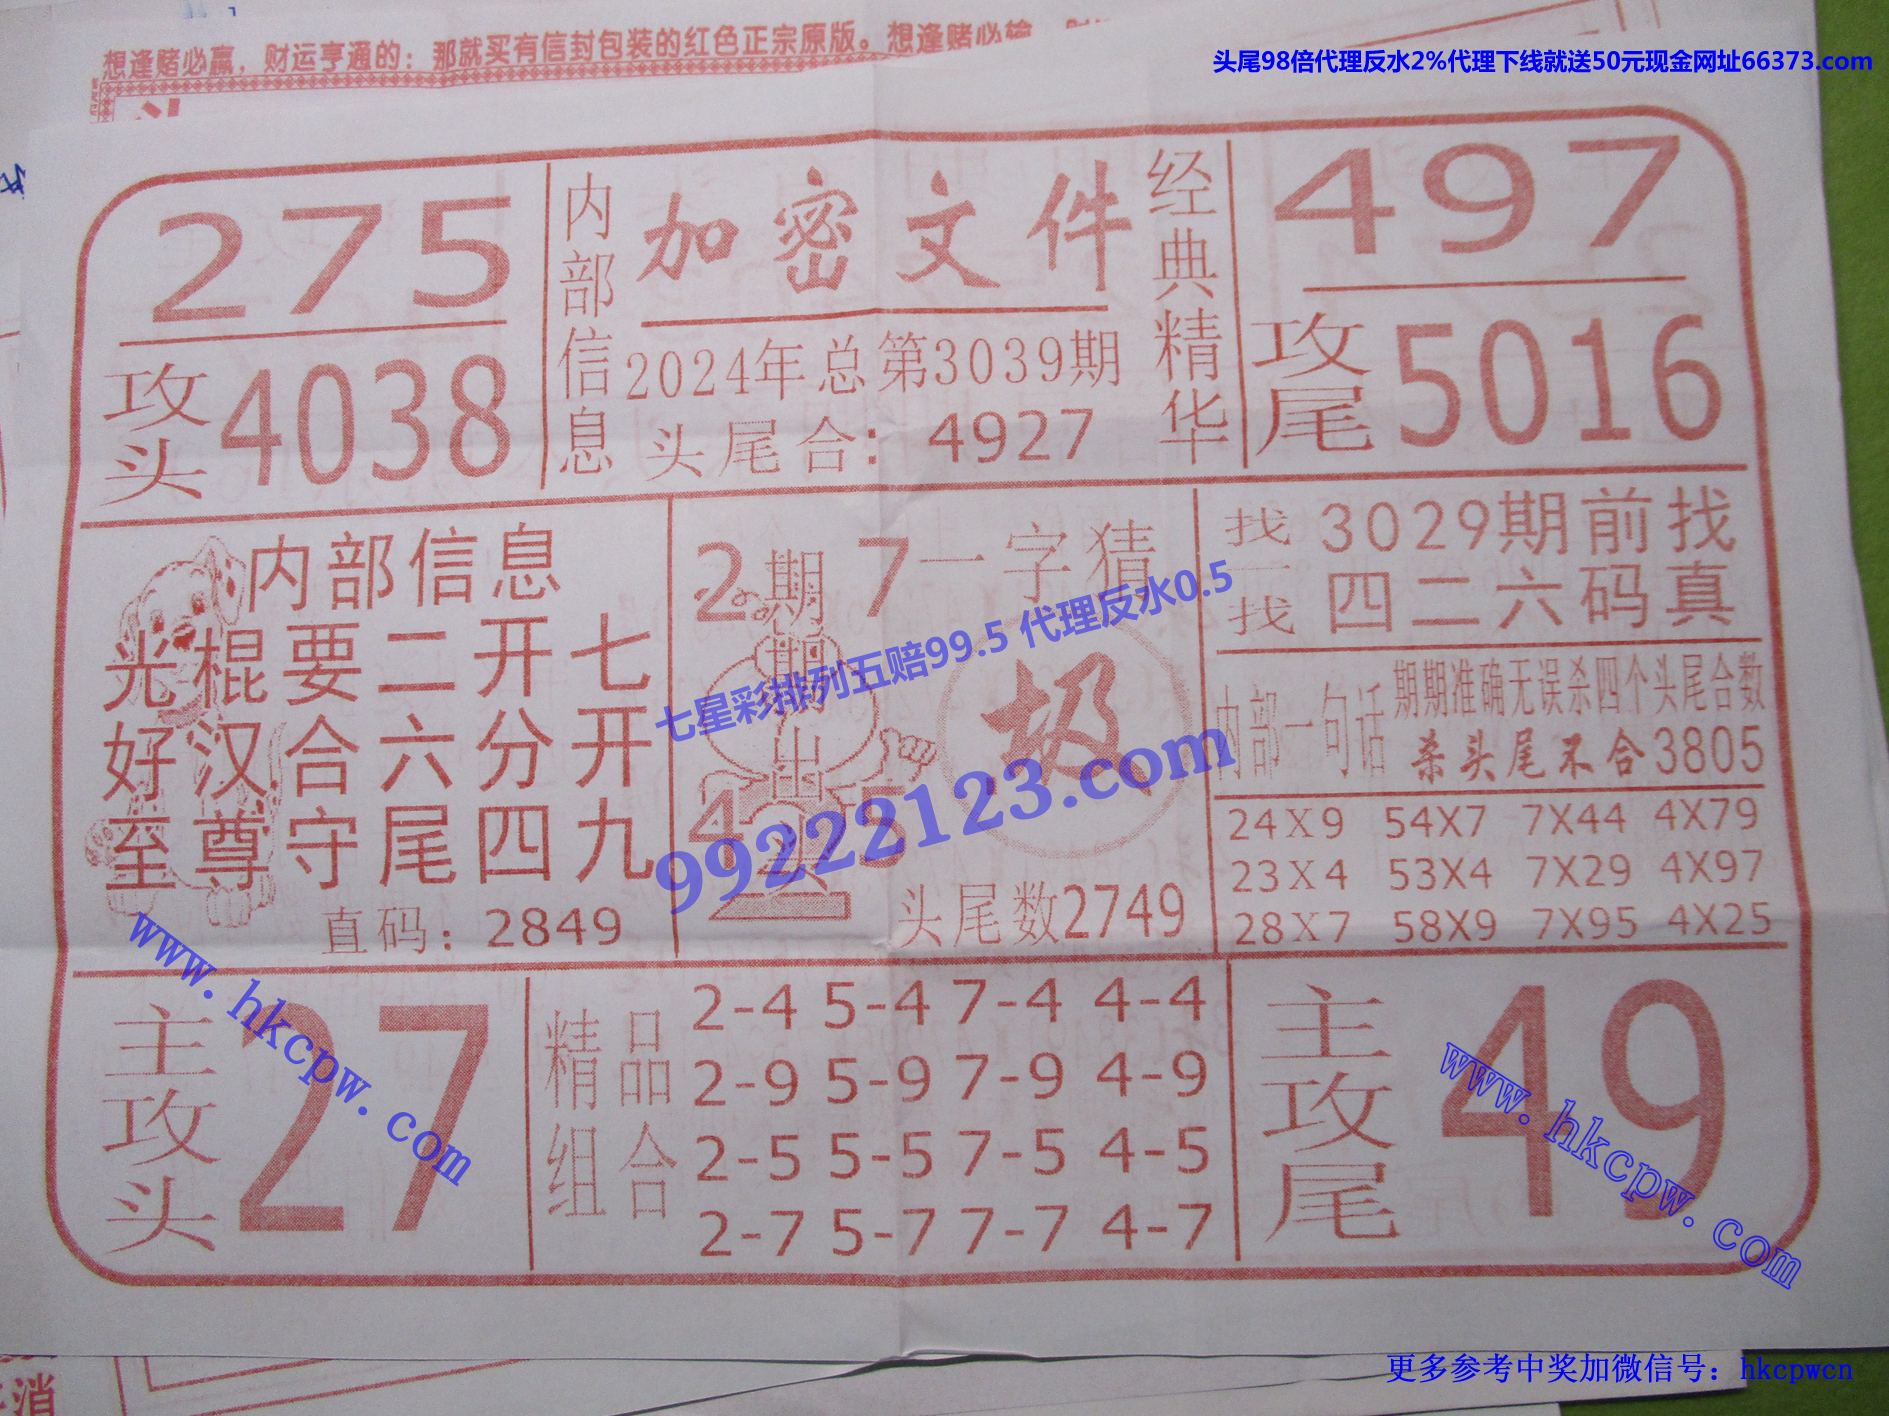 想逢赌必赢，财运亨通的：那就买有信封包装的红色正宗原版。想逢赌必
头尾98倍代理反水2%代理下线就送50元现金网址66373.com
275
攻头 4038
内部信息
加密文件
2024年总第3039期
头尾合：4927
经典精华
497
攻尾 5016
内部信息
光棍要二开七
好汉合六分开
至尊守尾四九
直码：2849
2 7
期期出头
4 5
2
一字猜
极
头尾数2749
找一找
3029期前找
四二六码真
内部一句话
期期准确无误杀四个头尾合数
杀头尾不合3805
24X9 54X7 7X44 4X79
23X4 53X4 7X29 4X97
28X7 58X9 7X95 4X25
七星彩排列五赔99.5 代理反水0.5
99222123.com
主攻头 27
精品组合
2-4 5-4 7-4 4-4
2-9 5-9 7-9 4-9
2-5 5-5 7-5 4-5
2-7 5-7 7-7 4-7
主攻尾 49
www.hkcpw.com
www.hkcpw.com
更多参考中奖加微信号：hkcpwcn
消